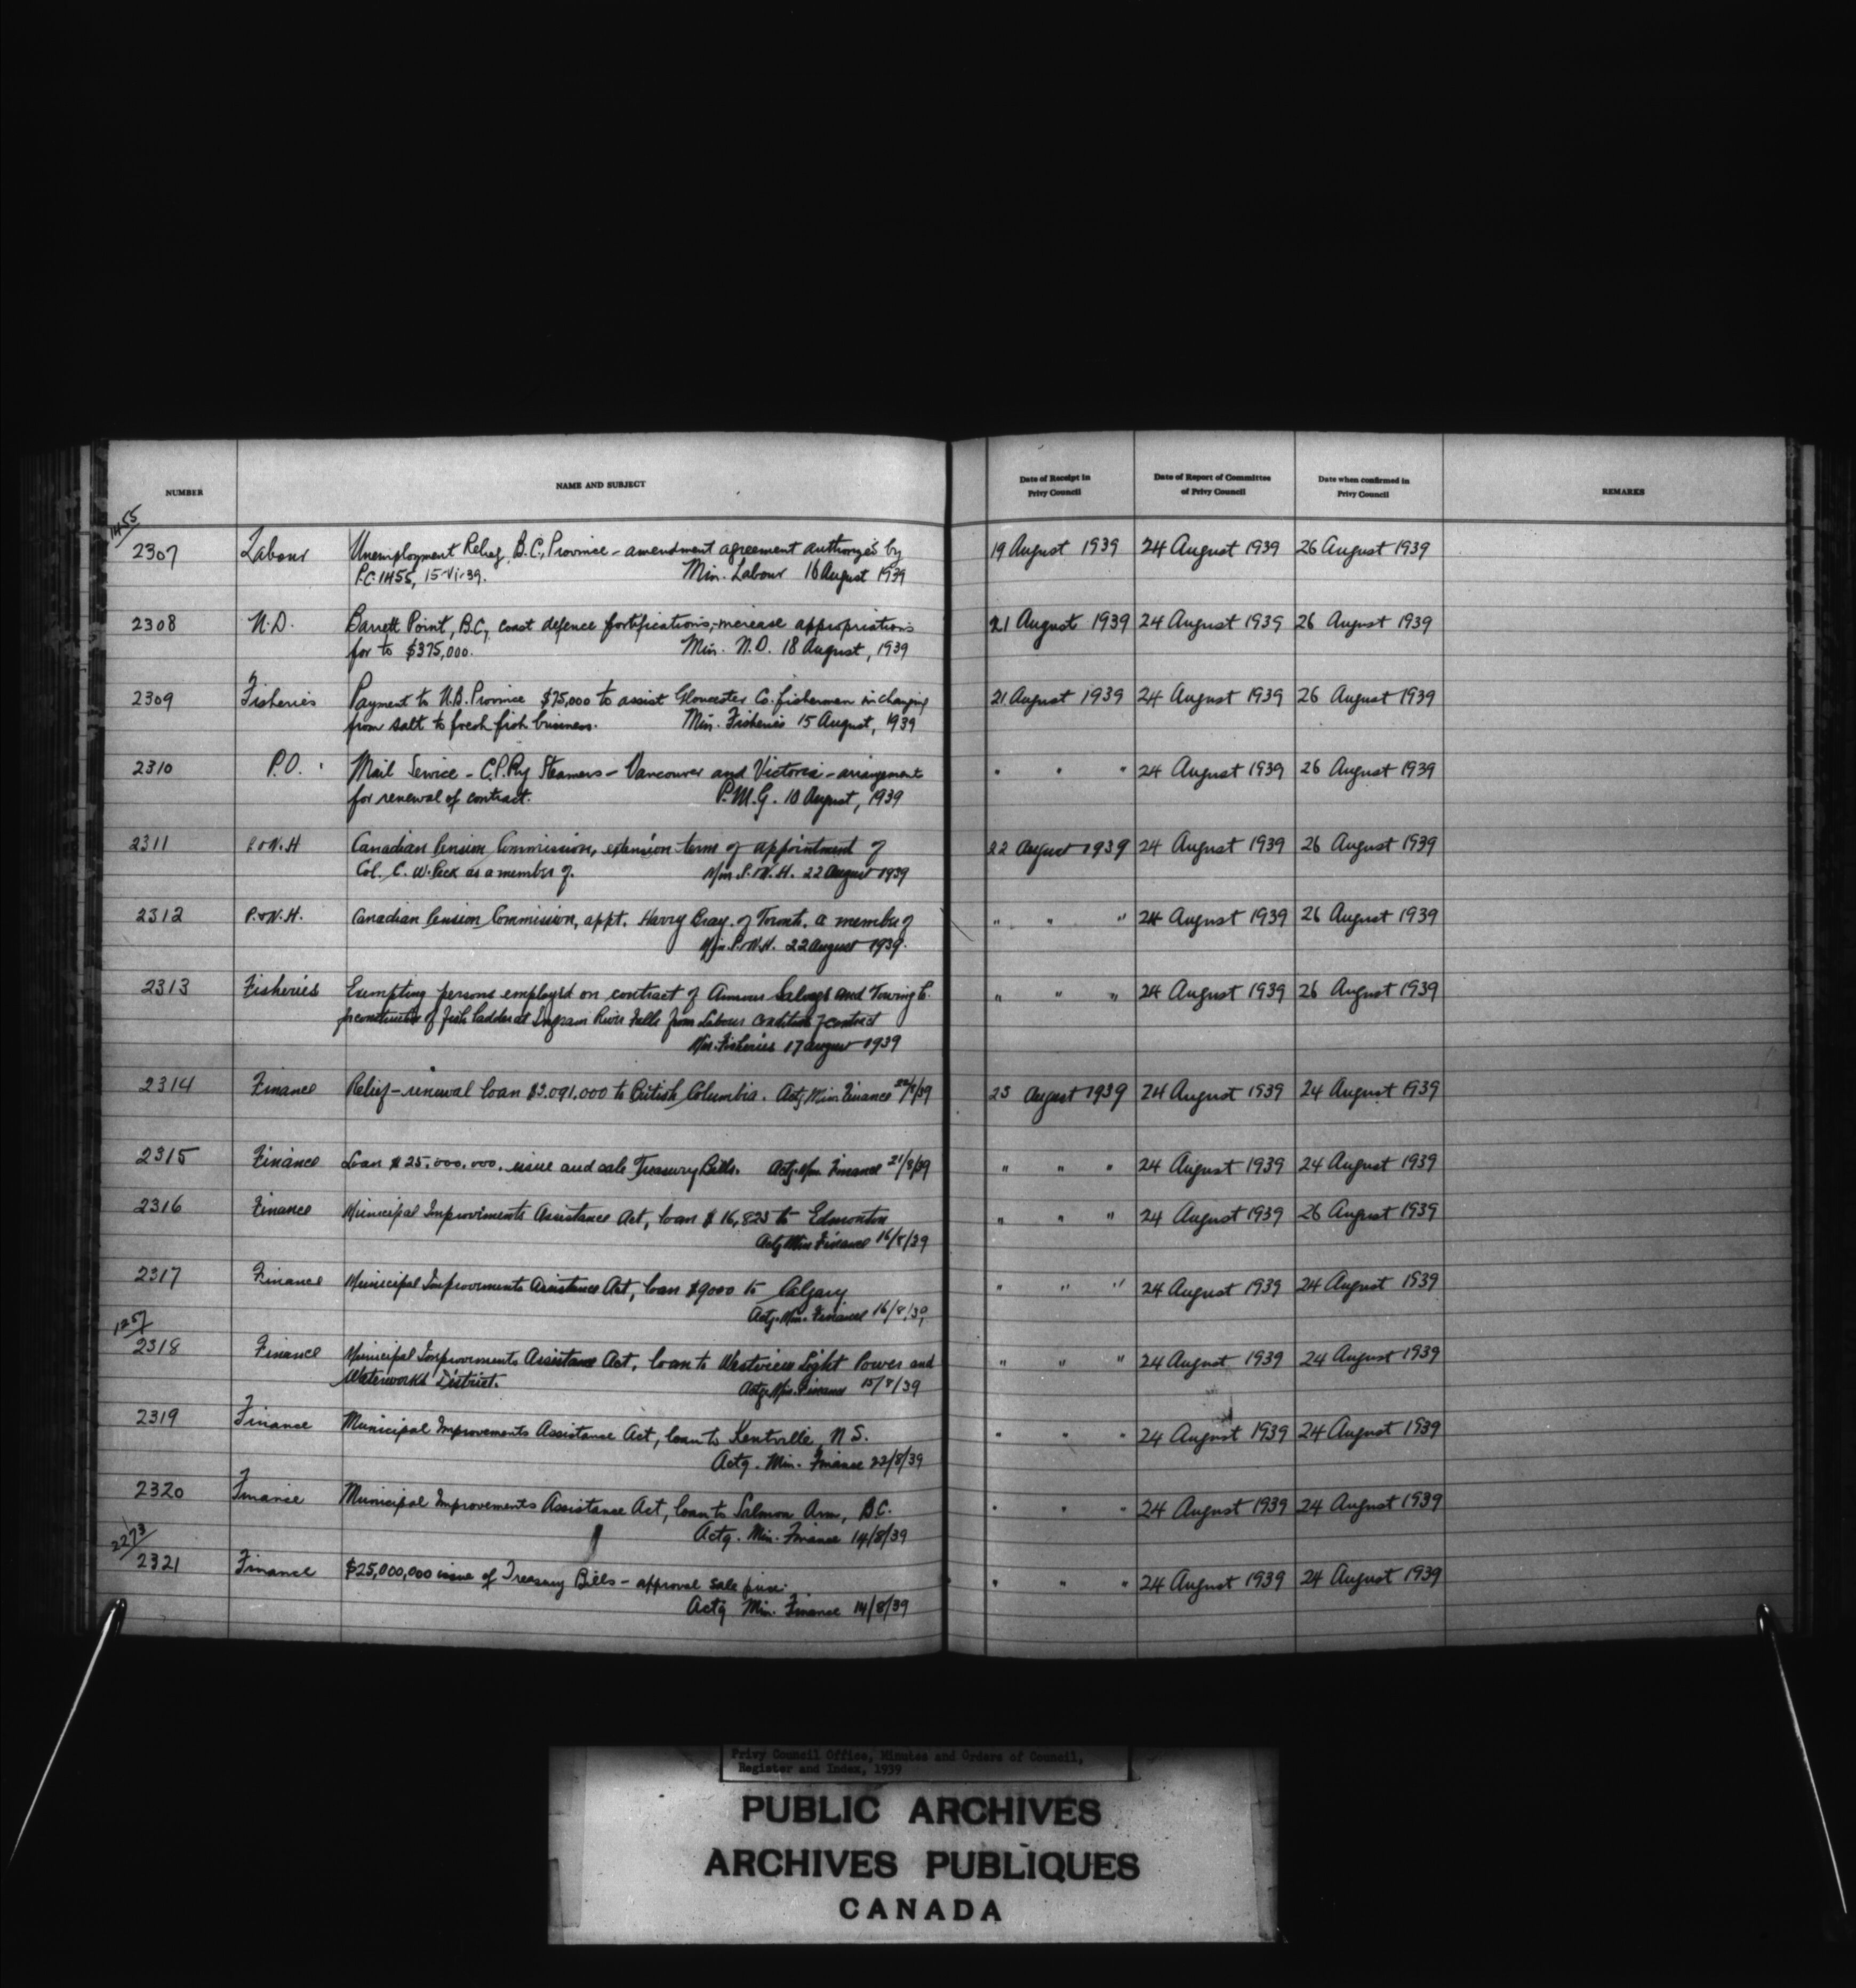 NUMBER NAME AND SUBJECT Date of Receipt in Privy Council Date of Report of Committee of Privy Council Date when confirmed in Privy Council REMARKS
1455/
2307 Labour Unemployment Relief, B.C. Province - amendment agreement authorized by 19 August 1939 24 August 1939 26 August 1939
P.C. 1455, 15-VI-39. Min. Labour 16 August 1939
2308 N.D. Barrett Point, B.C, coast defence fortifications, increase appropriations 21 August 1939 24 August 1939 26 August 1939
for to $375,000. Min. N.D. 18 August, 1939
2309 Fisheries Payment to N.B. Province $75,000 to assist Gloucester Co. fishermen in changing 21 August 1939 24 August 1939 26 August 1939
from salt to fresh fish business. Min. Fisheries 15 August, 1939
2310 P.O. Mail Service - C.P. Ry Steamers - Vancouver and Victoria - arrangement " " " 24 August 1939 26 August 1939
for renewal of contract. P.M.G. 10 August, 1939
2311 P.&N.H Canadian Pension Commission, extension term of appointment of 22 August 1939 24 August 1939 26 August 1939
Col. C. W. Peck as a member of. Min P.&N.H. 22 August 1939
2312 P.&N.H. Canadian Pension Commission, appt. Harry Bray of Toronto. a member of " " " 24 August 1939 26 August 1939
Min. P.&N.H. 22 August 1939.
2313 Fisheries Exempting persons employed on contract of Salvage and Towing Co. " " " 24 August 1939 26 August 1939
for construction of fish ladder at Ingram River Falls from Labour conditions of contract
Min. Fisheries 17 August 1939
2314 Finance Relief - renewal loan $3,091,000 to British Columbia. Actg Min Finance 22/8/39 23 August 1939 24 August 1939 24 August 1939
2315 Finance Loan $25,000,000. issue and sale Treasury Bills. Actg. Min. Finance 21/8/39 " " " 24 August 1939 24 August 1939
2316 Finance Municipal Improvements Assistance Act, loan $16,825 to Edmonton " " " 24 August 1939 26 August 1939
Actg Min Finance 16/8/39
2317 Finance Municipal Improvements Assistance Act, loan $9000 to Calgary " " " 24 August 1939 24 August 1939
Actg. Min. Finance 16/8/39
1257/
2318 Finance Municipal Improvements Assistance Act, loan to Westview Light Power and " " " 24 August 1939 24 August 1939
Waterworks District. Actg. Min. Finance 15/8/39
2319 Finance Municipal Improvements Assistance Act, loan to Kentville, N S. " " " 24 August 1939 24 August 1939
Actg. Min. Finance 22/8/39
2320 Finance Municipal Improvements Assistance Act, loan to Salmon Arm, B.C. " " " 24 August 1939 24 August 1939
Actg. Min. Finance 14/8/39
2273/
2321 Finance $25,000,000 issue of Treasury Bills - approval sale price. " " " 24 August 1939 24 August 1939
Actg Min. Finance 14/8/39
Privy Council Office, Minutes and Orders of Council,
Register and Index, 1939
PUBLIC ARCHIVES
ARCHIVES PUBLIQUES
CANADA